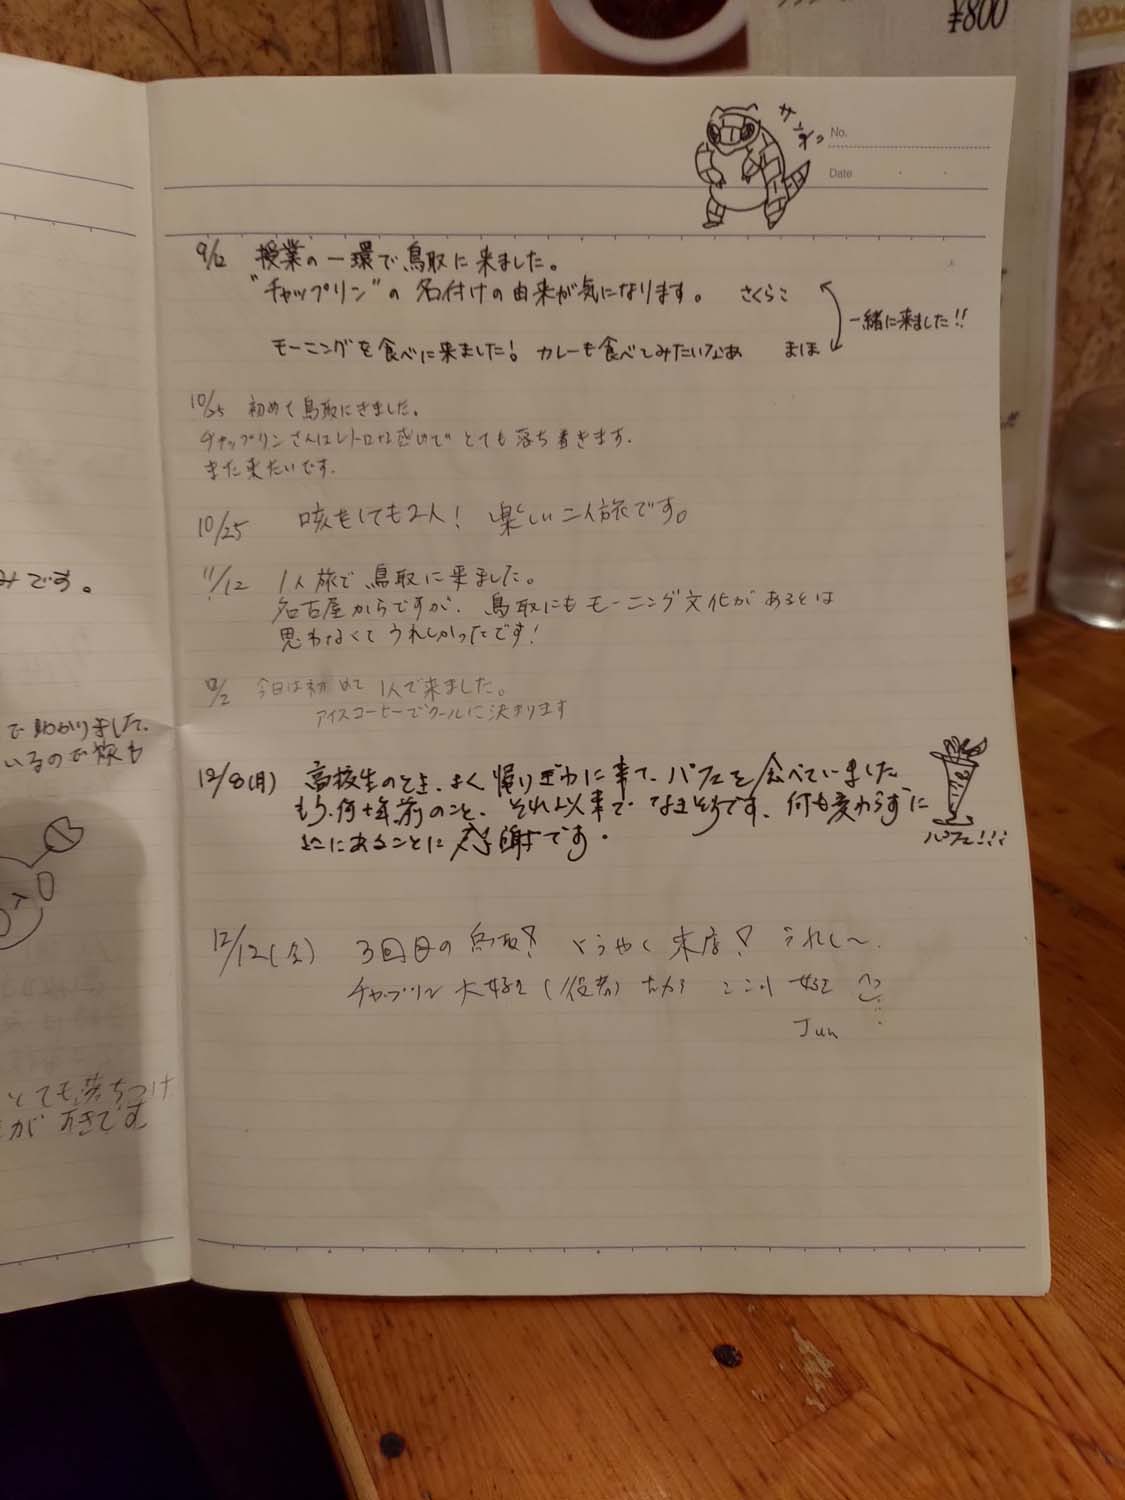 ¥800
サンド
No.
Date
9/12 授業の一環で鳥取に来ました。
"チャップリン"の名付けの由来が気になります。 さくらこ
一緒に来ました!!
モーニングを食べに来ました! カレーも食べてみたいなあ まほ
10/25 初めて鳥取にきました。
チャップリンさんはレトロな感じでとても落ち着きます.
また来たいです.
10/25 咳をしても2人! 楽しい二人旅です。
11/12 1人旅で鳥取に来ました。
名古屋からですが、鳥取にもモーニング文化があるとは
思わなくてうれしかったです!
12/2 今日は初めて1人で来ました。
アイスコーヒーでクールに決まります
12/8(月) 高校生のとき、よく帰りぎわに来て、パフェを食べていました
もう、何十年前のこと、それ以来で、なきそうです、何も変わらずに
ここにあることに感謝です.
パフェ!!!
12/12(金) 3回目の鳥取! ようやく来店! うれし〜.
チャップリン大好き(役者)だから ここり好き
Jun
みです。
で助かりました.
いるので旅も
とても落ちつけ
が好きです